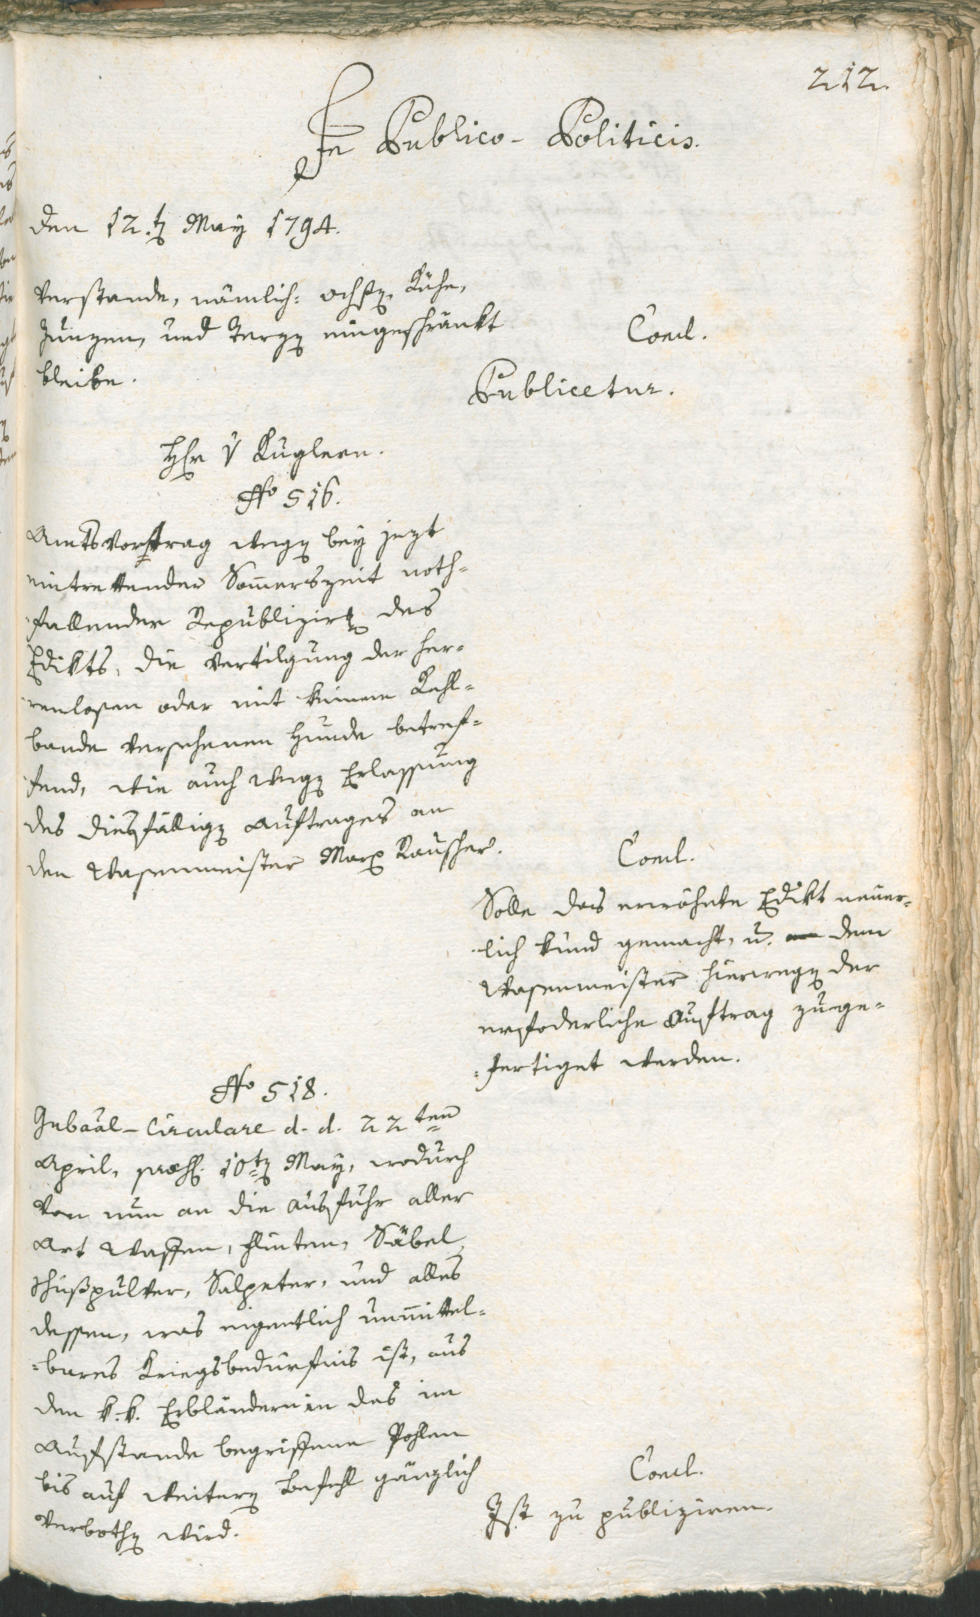 212.
In Publico-Politicis.
den 12.ten May 1794.
Verstande, nämlich: ochsen, Kühe,
Jungen, und Terzen eingeschränkt
bleibe.
Concl.
Publicetur.
Hr v Kuglern.
No 516.
Amtsvortrag wegen bey jezt
eintrettender Somerszeit noth-
fallender Republizirung des
Edikts, die Vertilgung der her-
renlosen oder mit keinem Hals-
bande versehenen Hunde betref-
fend, wie auch wegen Erlassung
des diesfälligen Auftrages an
den Wasenmeister Marx Rauscher.
Concl.
Solle das erwähnte Edikt neuer-
lich kund gemacht, u. dem
Wasenmeister hierwegen der
erfoderliche Auftrag zuge-
fertiget werden.
No 518.
Gubaal-Circulare d. d. 22ten
April, praes. 10ten May, wodurch
von nun an die Ausfuhr aller
Art Waffen, Flinten, Säbel,
Schußpulver, Salpeter, und alles
dessen, was eigentlich unmittel-
bares Kriegsbedürfnis ist, aus
den k. k. Erbländern in das im
Aufstande begriffene Pohlen
bis auf weitern Befehl gänzlich
verbothen wird.
Concl.
Ist zu publiziren.